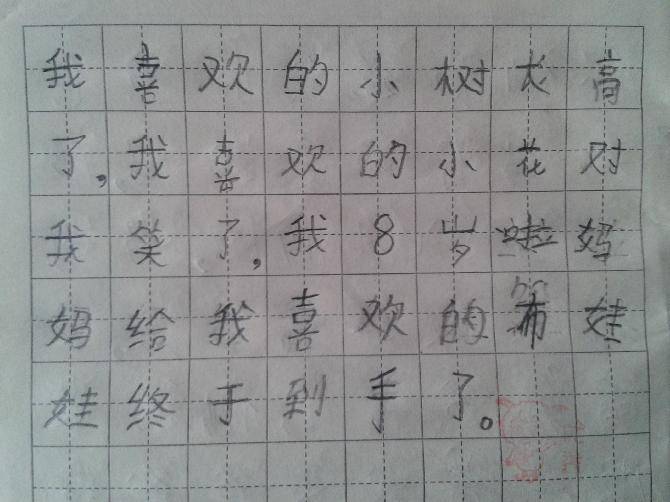 我喜欢的小树长高
了,我喜欢的小花对
我笑了,我8岁啦妈
妈给我喜欢的布娃
娃终于到手了。